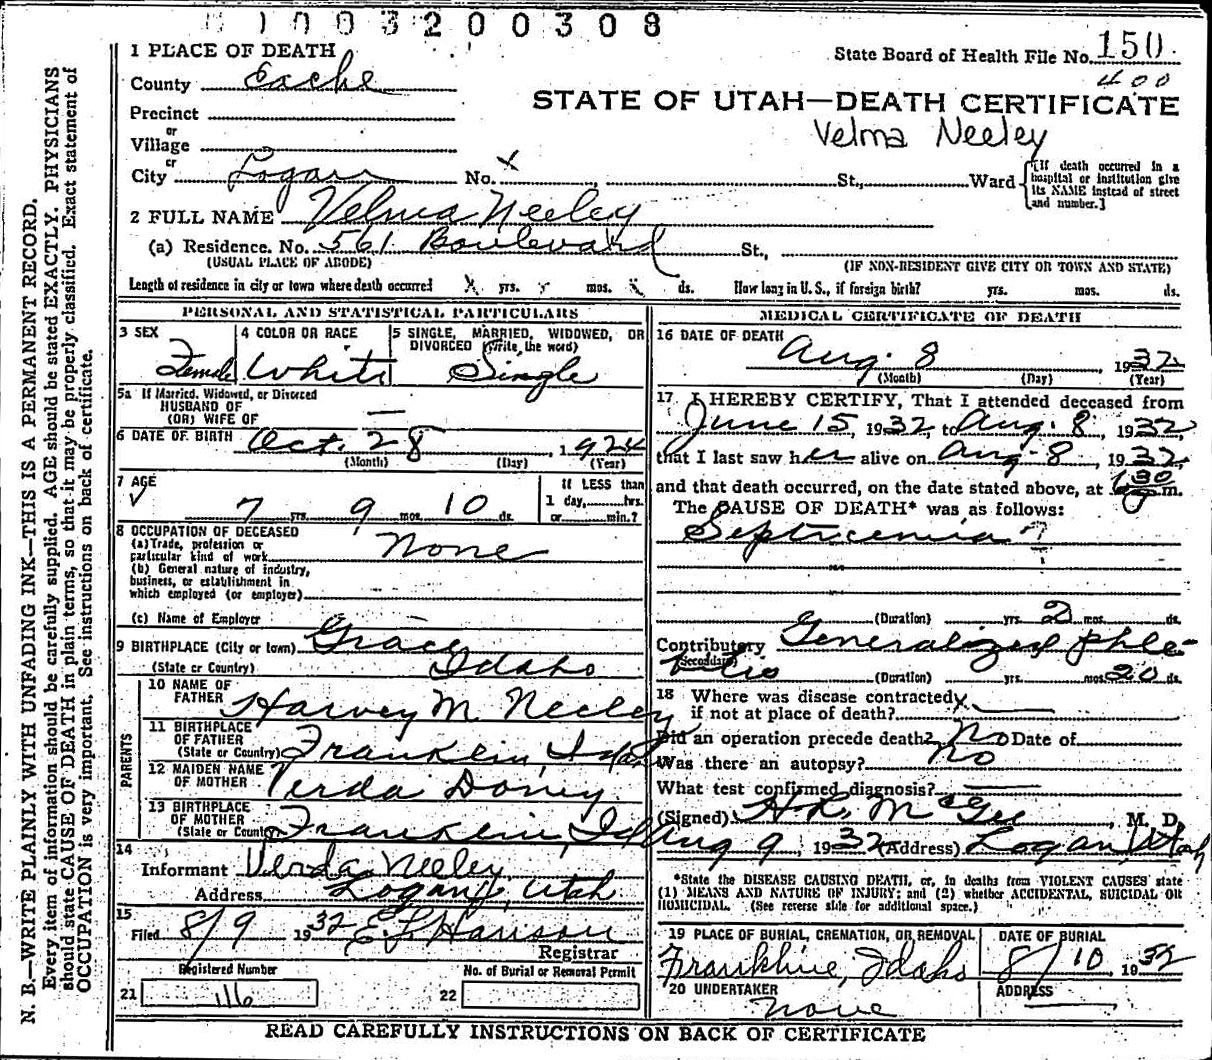 0100320 0308
1 PLACE OF DEATH
State Board of Health File No. 150
County Cache
400
STATE OF UTAH—DEATH CERTIFICATE
Precinct
Velma Neeley
or
Village
or
City Logan No. x St., Ward
[If death occurred in a hospital or institution give its NAME instead of street and number.]
2 FULL NAME Velma Neeley
(a) Residence. No. 561 Boulevard St.,
(USUAL PLACE OF ABODE) (IF NON-RESIDENT GIVE CITY OR TOWN AND STATE)
Length of residence in city or town where death occurred x yrs. mos. x ds. How long in U. S., if foreign birth? yrs. mos. ds.
PERSONAL AND STATISTICAL PARTICULARS
3 SEX Female
4 COLOR OR RACE White
5 SINGLE, MARRIED, WIDOWED, OR DIVORCED (write the word) Single
5a If Married, Widowed, or Divorced
HUSBAND OF
(OR) WIFE OF —
6 DATE OF BIRTH Oct. 28, 1924
(Month) (Day) (Year)
7 AGE 7 yrs. 9 mos. 10 ds.
If LESS than 1 day, hrs. or min.?
8 OCCUPATION OF DECEASED
(a) Trade, profession or particular kind of work None
(b) General nature of industry, business, or establishment in which employed (or employer)
(c) Name of Employer
9 BIRTHPLACE (City or town) Grace
(State or Country) Idaho
PARENTS
10 NAME OF FATHER Harvey M Neeley
11 BIRTHPLACE OF FATHER (State or Country) Franklin, Idaho
12 MAIDEN NAME OF MOTHER Verda Doney
13 BIRTHPLACE OF MOTHER (State or Country) Franklin, Ida
14 Informant Verda Neeley
Address Logan, Utah
15 Filed 8/9 1932 E L Hanson
Registrar
Registered Number
No. of Burial or Removal Permit
21 116 22
MEDICAL CERTIFICATE OF DEATH
16 DATE OF DEATH
Aug. 8 1932
(Month) (Day) (Year)
17 I HEREBY CERTIFY, That I attended deceased from
June 15, 1932, to Aug. 8, 1932,
that I last saw her alive on Aug. 8, 1932,
and that death occurred, on the date stated above, at 630 m.
The CAUSE OF DEATH* was as follows:
Septicemia ?
(Duration) yrs. 2 mos. ds.
Contributory Generalized phle-
(Secondary) bitis
(Duration) yrs. mos. 20 ds.
18 Where was disease contracted x
if not at place of death?
Did an operation precede death? No Date of
Was there an autopsy? No
What test confirmed diagnosis? —
(Signed) H. R. McGee, M. D.
Aug 9, 1932 (Address) Logan, Utah
*State the DISEASE CAUSING DEATH, or, in deaths from VIOLENT CAUSES state
(1) MEANS AND NATURE OF INJURY; and (2) whether ACCIDENTAL, SUICIDAL OR
HOMICIDAL. (See reverse side for additional space.)
19 PLACE OF BURIAL, CREMATION, OR REMOVAL DATE OF BURIAL
Frankline, Idaho 8/10, 1932
20 UNDERTAKER ADDRESS
none
READ CAREFULLY INSTRUCTIONS ON BACK OF CERTIFICATE
N. B.—WRITE PLAINLY WITH UNFADING INK—THIS IS A PERMANENT RECORD.
Every item of information should be carefully supplied. AGE should be stated EXACTLY. PHYSICIANS
should state CAUSE OF DEATH in plain terms, so that it may be properly classified. Exact statement of
OCCUPATION is very important. See instructions on back of certificate.